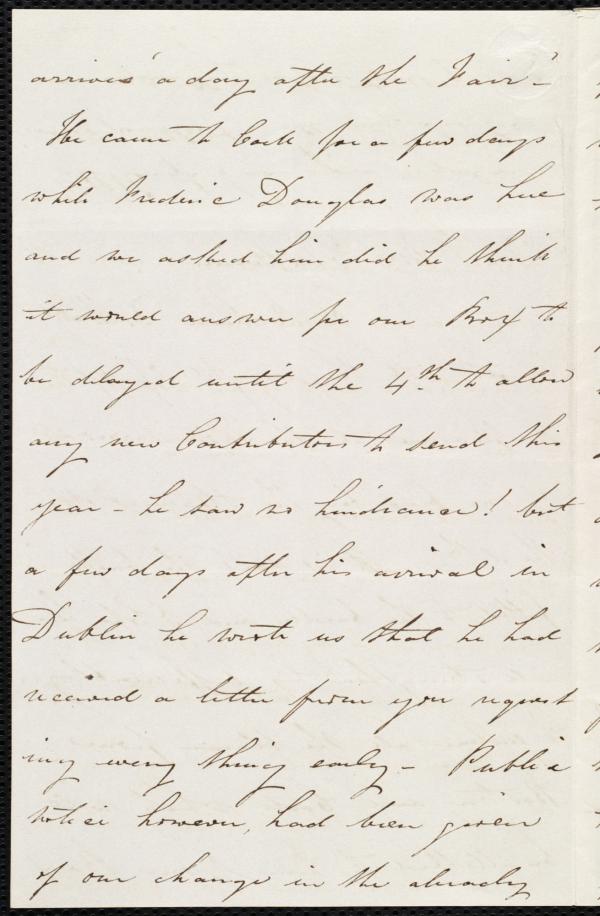 arrives 'a day after the Fair'-
He came to Cork for a few days
while Frederic Douglas was here
and we asked him did he think
it would answer for our Box to
be delayed until the 4th to allow
any new Contributors to send this
year - he saw no hindrance! but
a few days after his arrival in
Dublin he wrote us that he had
received a letter from you request
ing every thing early - Public
notice however, had been given
of our change in the already